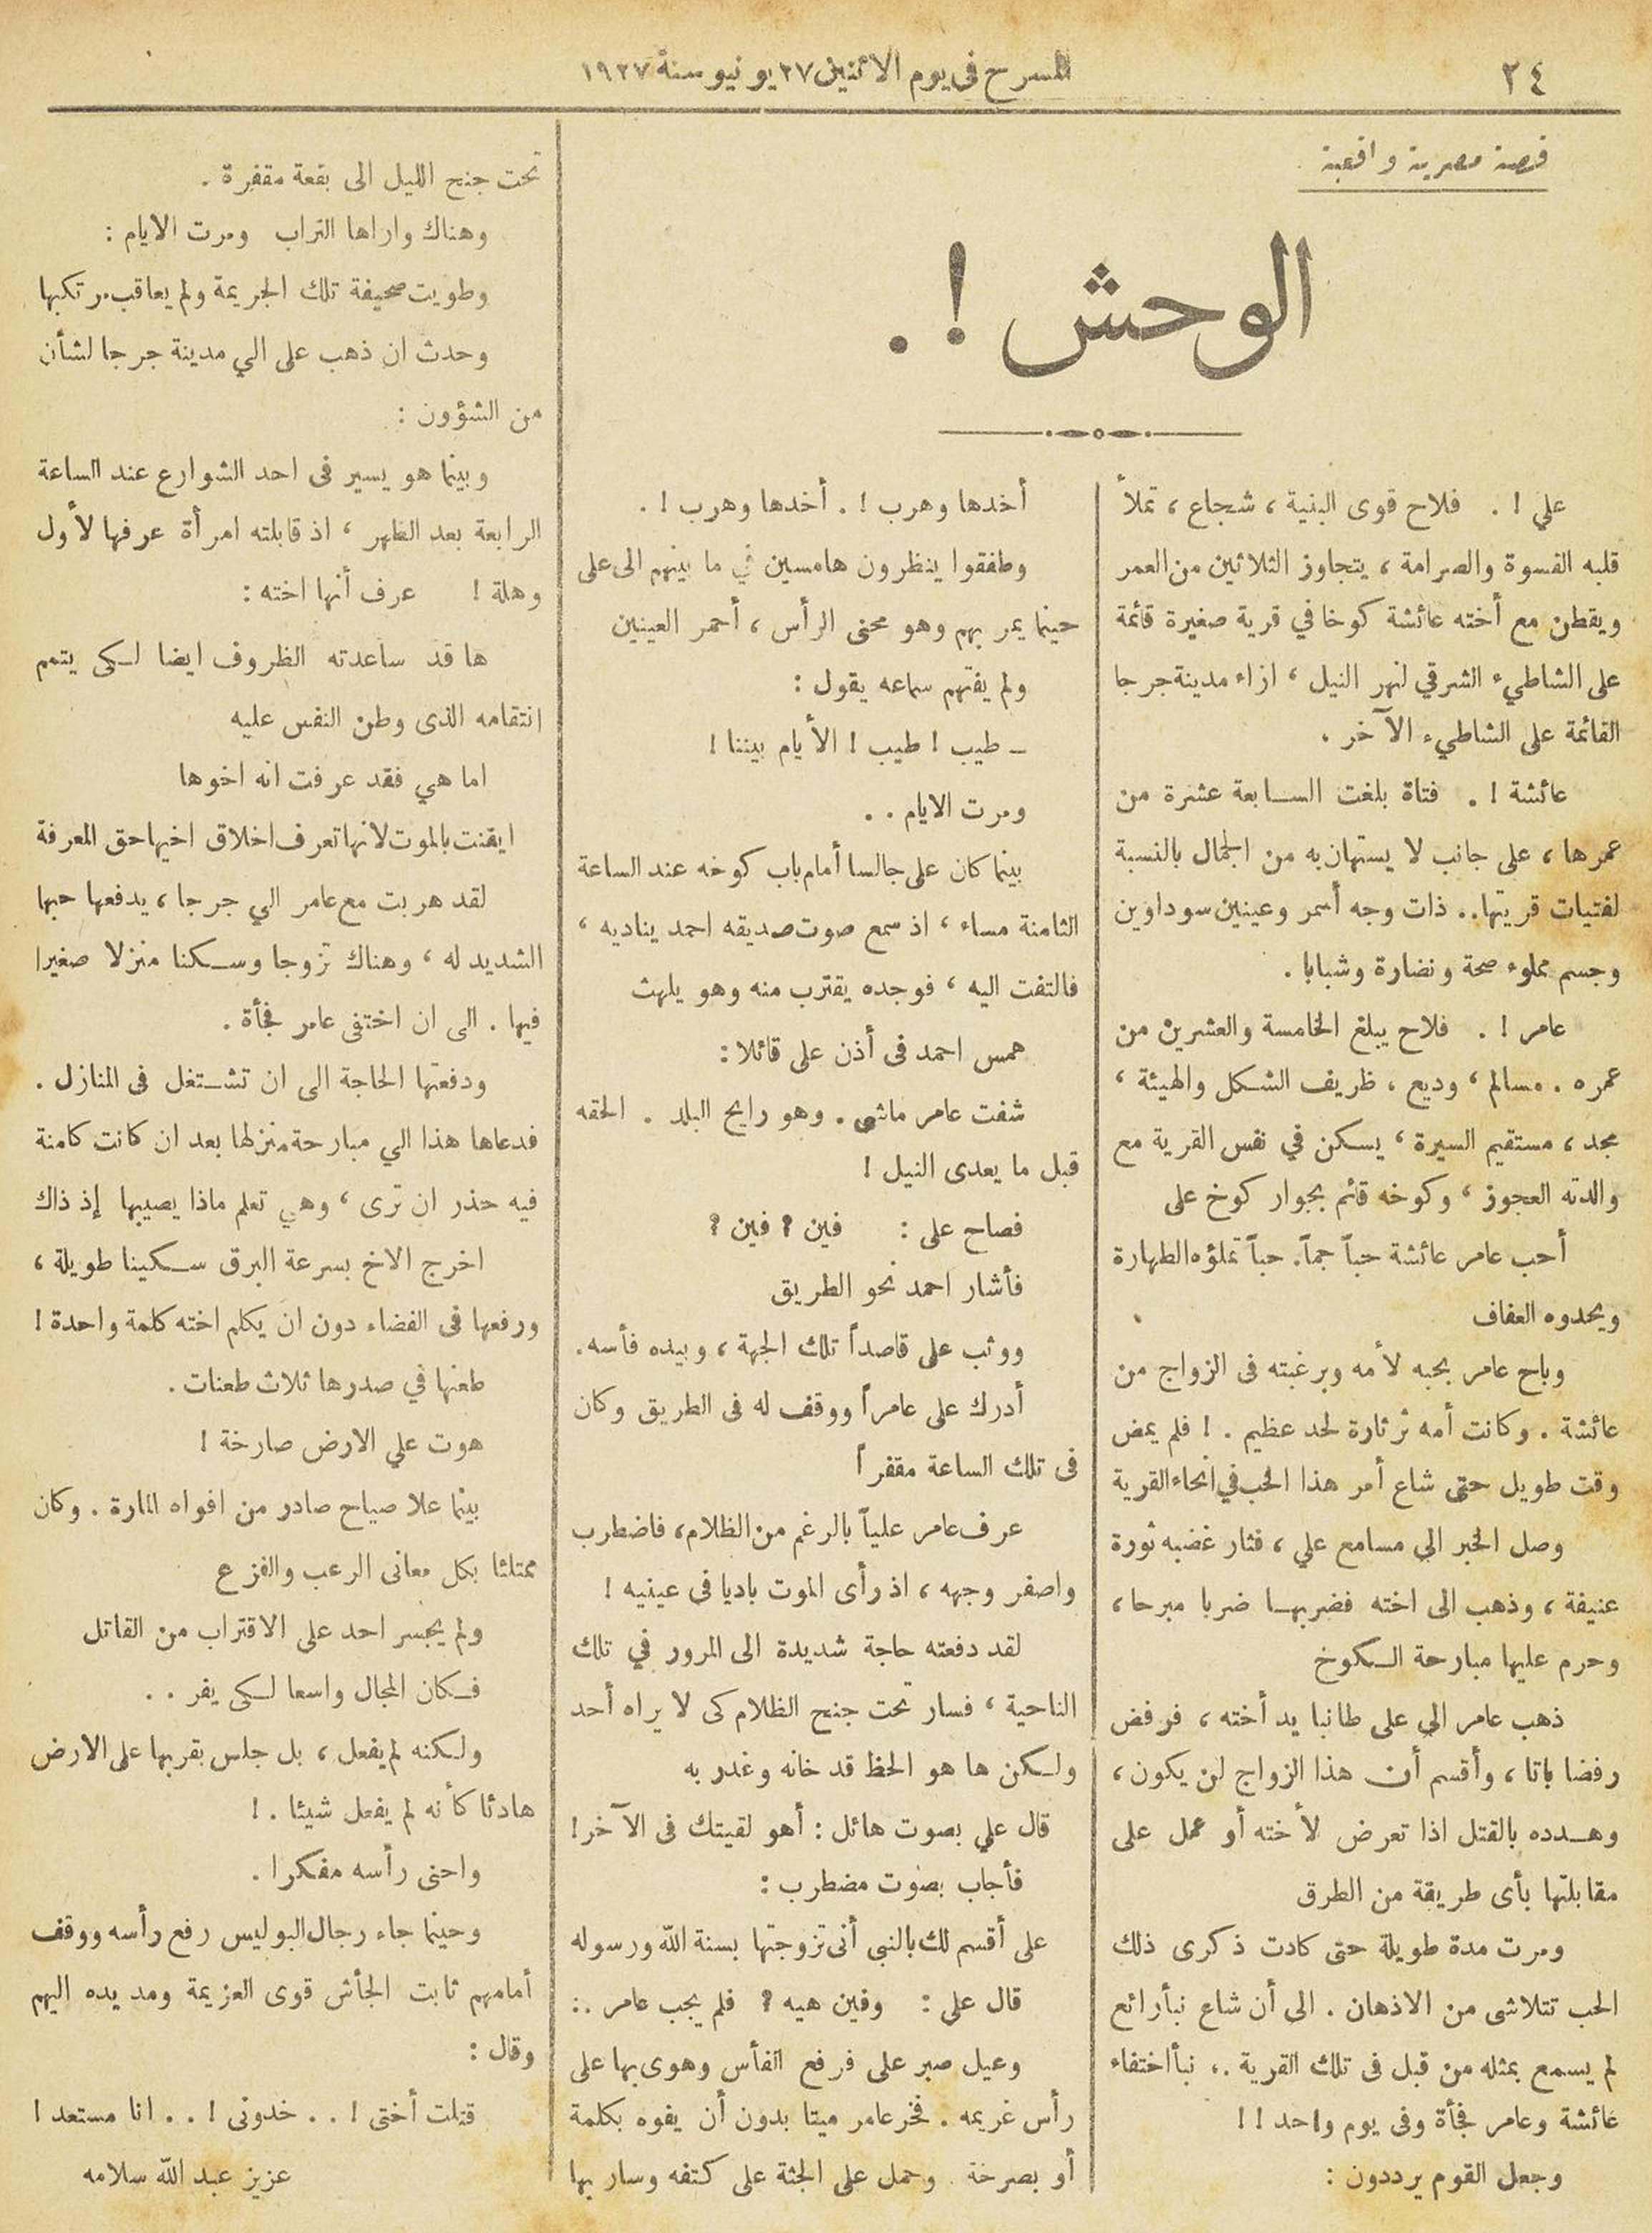 ٢٤
المسرح في يوم الاثنين ٢٧ يونيو سنة ١٩٢٧
قصة مصرية واقعية
الوحش ! .
علي ! . فلاح قوى البنية ، شجاع ، تملأ
قلبه القسوة والصرامة ، يتجاوز الثلاثين من العمر
ويقطن مع أخته عائشة كوخا في قرية صغيرة قائمة
على الشاطيء الشرقي لنهر النيل ، ازاء مدينة جرجا
القائمة على الشاطيء الآخر .
عائشة ! . فتاة بلغت السابعة عشرة من
عمرها ، على جانب لا يستهان به من الجمال بالنسبة
لفتيات قريتها .. ذات وجه أسمر وعينين سوداوين
وجسم مملوء صحة ونضارة وشبابا .
عامر ! . فلاح يبلغ الخامسة والعشرين من
عمره . مسالم ، وديع ، ظريف الشكل والهيئة ،
مجد ، مستقيم السيرة ، يسكن في نفس القرية مع
والدته العجوز ، وكوخه قائم بجوار كوخ على
أحب عامر عائشة حباً جماً . حباً تملؤه الطهارة
ويحدوه العفاف
وباح عامر بحبه لأمه وبرغبته فى الزواج من
عائشة . وكانت أمه ثرثارة لحد عظيم . ! فلم يمض
وقت طويل حتى شاع أمر هذا الحب في انحاء القرية
وصل الخبر الي مسامع علي ، فثار غضبه ثورة
عنيفة ، وذهب الى اخته فضربها ضربا مبرحا ،
وحرم عليها مبارحة الكوخ
ذهب عامر الي على طالبا يد أخته ، فرفض
رفضا باتا ، وأقسم أن هذا الزواج لن يكون ،
وهدده بالقتل اذا تعرض لأخته أو عمل على
مقابلتها بأى طريقة من الطرق
ومرت مدة طويلة حتى كادت ذكرى ذلك
الحب تتلاشى من الاذهان . الى أن شاع نبأ رائع
لم يسمع بمثله من قبل فى تلك القرية .، نبأ اختفاء
عائشة وعامر فجأة وفى يوم واحد ! !
وجعل القوم يرددون :
أخدها وهرب ! . أخدها وهرب ! .
وطفقوا ينظرون هامسين في ما بينهم الى على
حينما يمر بهم وهو محنى الرأس ، أحمر العينين
ولم يفتهم سماعه يقول :
ـ طيب ! طيب ! الأيام بيننا !
ومرت الايام . .
بينما كان على جالسا أمام باب كوخه عند الساعة
الثامنة مساء ، اذ سمع صوت صديقه احمد يناديه ،
فالتفت اليه ، فوجده يقترب منه وهو يلهث
همس احمد فى أذن على قائلا :
شفت عامر ماشى . وهو رايح البلد . الحقه
قبل ما يعدى النيل !
فصاح على : فين ؟ فين ؟
فأشار احمد نحو الطريق
ووثب على قاصداً تلك الجهة ، وبيده فأسه .
أدرك على عامراً ووقف له فى الطريق وكان
فى تلك الساعة مقفراً
عرف عامر علياً بالرغم من الظلام ، فاضطرب
واصفر وجهه ، اذ رأى الموت باديا فى عينيه !
لقد دفعته حاجة شديدة الى المرور في تلك
الناحية ، فسار تحت جنح الظلام كى لا يراه أحد
ولكن ها هو الحظ قد خانه وغدر به
قال علي بصوت هائل : أهو لقيتك فى الآخر !
فأجاب بصوت مضطرب :
على أقسم لك بالنبى أنى تزوجتها بسنة الله ورسوله
قال على : وفين هيه ؟ فلم يجب عامر .:
وعيل صبر على فرفع الفأس وهوى بها على
رأس غريمه . فخر عامر ميتا بدون أن يفوه بكلمة
أو بصرخة . وحمل على الجثة على كتفه وسار بها
تحت جنح الليل الى بقعة مقفرة .
وهناك واراها التراب ومرت الايام :
وطويت صحيفة تلك الجريمة ولم يعاقب مرتكبها
وحدث ان ذهب على الي مدينة جرجا لشأن
من الشؤون :
وبينما هو يسير فى احد الشوارع عند الساعة
الرابعة بعد الظهر ، اذ قابلته امرأة عرفها لأول
وهلة ! عرف أنها اخته :
ها قد ساعدته الظروف ايضا لكى يتمم
انتقامه الذى وطن النفس عليه
اما هي فقد عرفت انه اخوها
ايقنت بالموت لانها تعرف اخلاق اخيها حق المعرفة
لقد هربت مع عامر الي جرجا ، يدفعها حبها
الشديد له ، وهناك تزوجا وسكنا منزلا صغيرا
فيها . الى ان اختفى عامر فجأة .
ودفعتها الحاجة الى ان تشتغل فى المنازل .
فدعاها هذا الي مبارحة منزلها بعد ان كانت كامنة
فيه حذر ان ترى ، وهي تعلم ماذا يصيبها إذ ذاك
اخرج الاخ بسرعة البرق سكينا طويلة ،
ورفعها فى الفضاء دون ان يكلم اخته كلمة واحدة !
طعنها في صدرها ثلاث طعنات .
هوت علي الارض صارخة !
بينما علا صياح صادر من افواه المارة . وكان
ممتلئا بكل معانى الرعب والفزع
ولم يجسر احد على الاقتراب من القاتل
فكان المجال واسعا لكى يفر . .
ولكنه لم يفعل ، بل جلس بقربها على الارض
هادئا كأنه لم يفعل شيئا . !
واحنى رأسه مفكرا .
وحينما جاء رجال البوليس رفع رأسه ووقف
أمامهم ثابت الجأش قوى العزيمة ومد يده اليهم
وقال :
قتلت أختى ! . . خدونى ! . . انا مستعد !
عزيز عبد الله سلامه